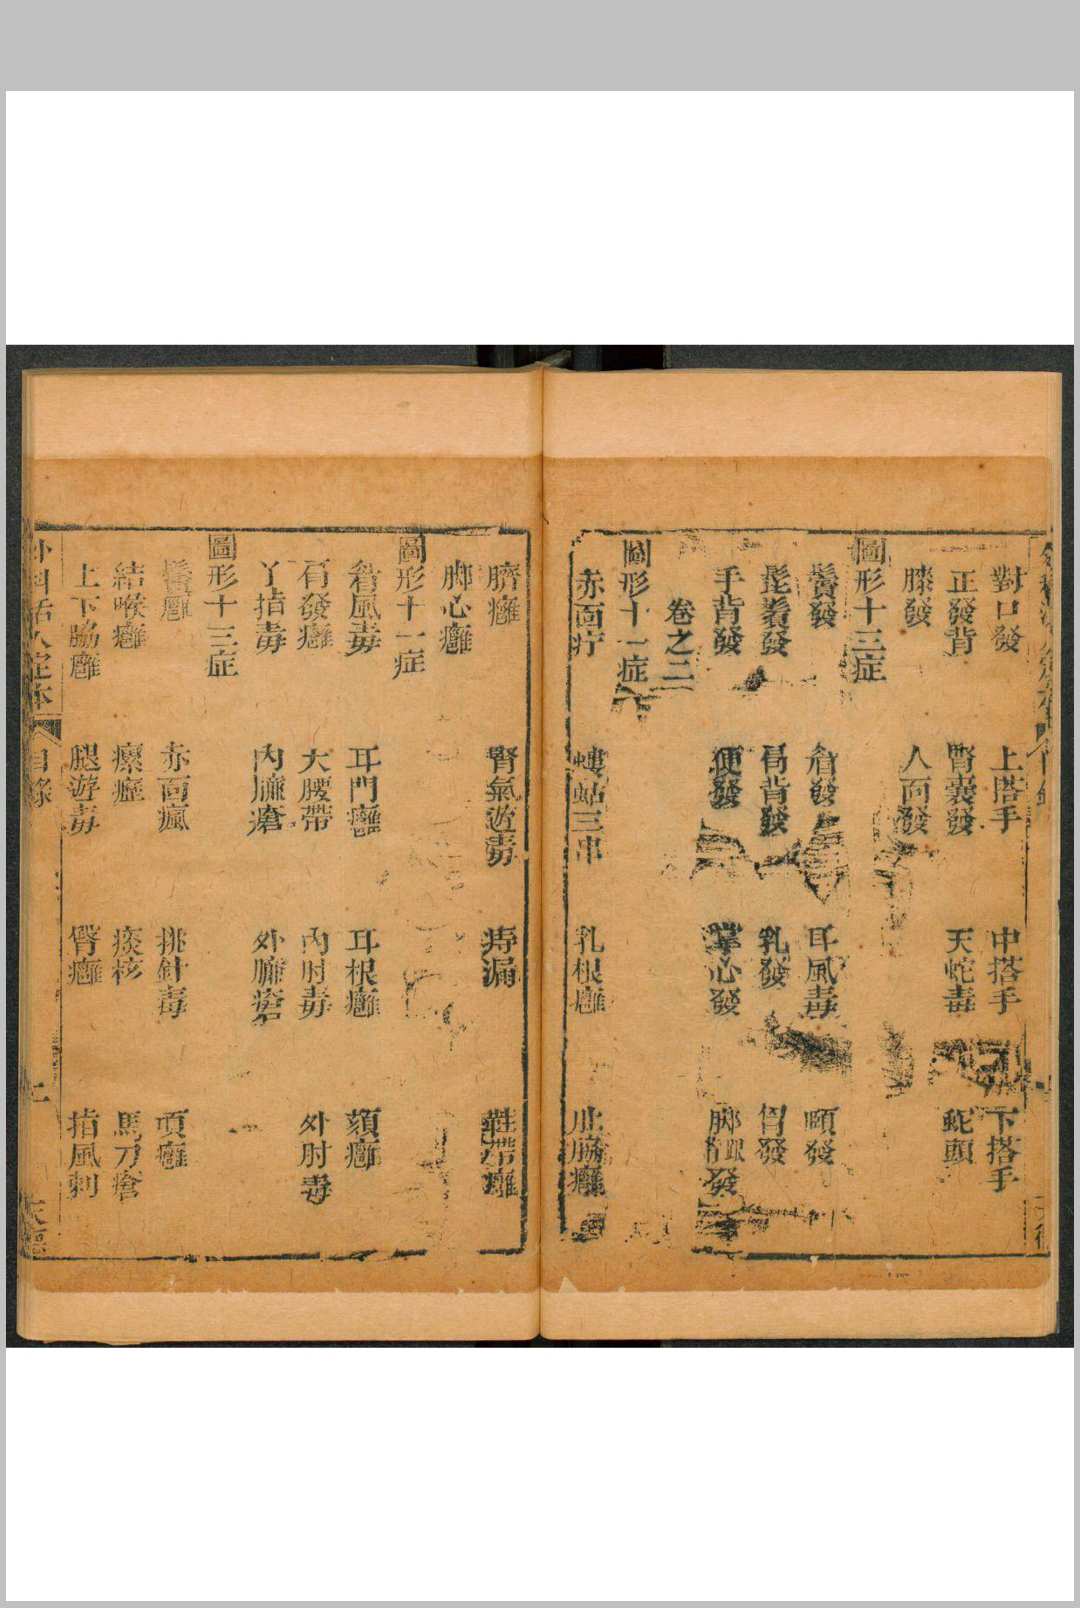 對口發 上搭手 中搭手 下搭手
正發背 腎囊發 天蛇毒 蛇頭
膝發 人面發
圖形十三症
鬢發 耳風毒 頤發
肩背發 乳發 胷發
手背發 便發 掌心發 脚跟發
卷之二
圖形十一症
赤面疔 螻蛄三串 乳根癰 止脇癰
臍癰 腎氣遊毒 痔漏
脚心癰
圖形十一症
耳門癰 耳根癰 頦癰
肩發癰 大腰帶 內肘毒 外肘毒
丫指毒 內臁瘡 外臁瘡
圖形十三症
鬢癰 赤面瘋 挑針毒 項癰
結喉癰 瘰癧 痰核 馬刀瘡
上下脇癰 腿遊毒 臀癰 指風刺
外科活人定本 目錄